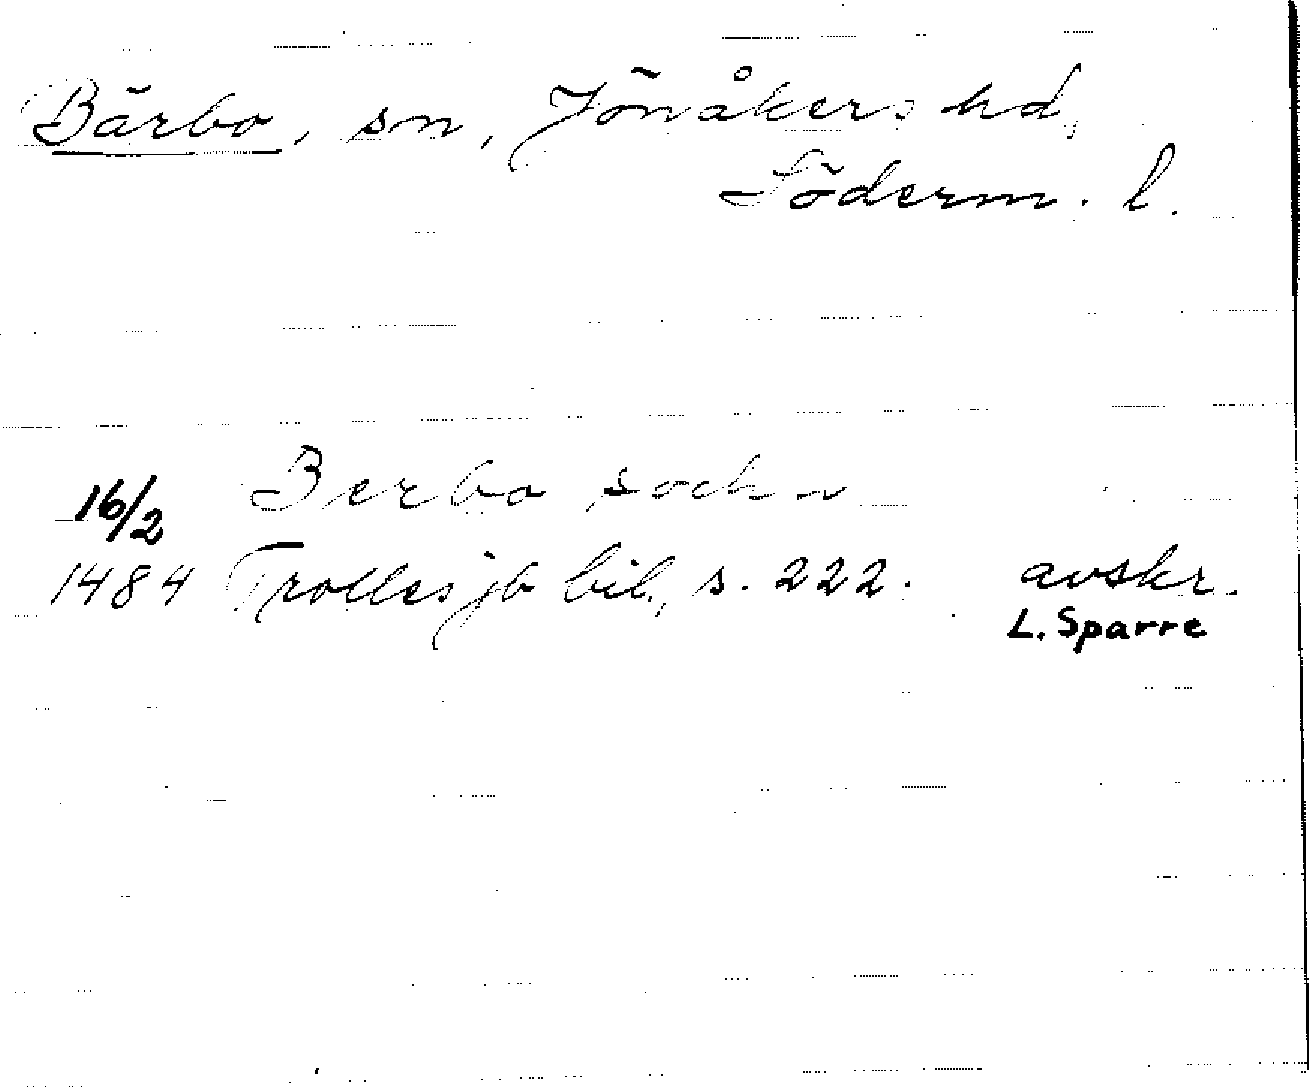 Bärbo, sn, Jönåkers hd,
Söderm. l.
16/2 Berbo sochn
1484 Trolles jb bil., s. 222. avskr.
L. Sparre